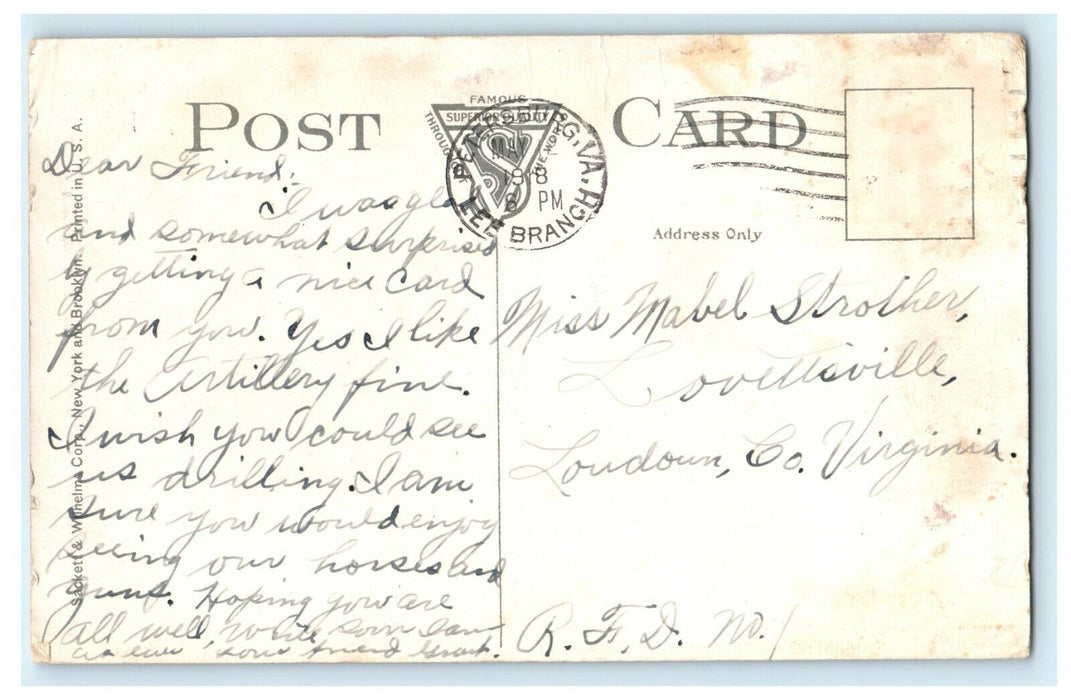 POST CARD
FAMOUS
SUPERIOR QUALITY
THROUGHOUT THE WORLD
PETERSBURG, VA.
MAY
1918
6 PM
LEE BRANCH
Address Only
Sackett & Wilhelms Corp., New York and Brooklyn. Printed in U. S. A.
Dear Friend:
I was glad
and somewhat surprised
by getting a nice card
from you. Yes I like
the Artillery fine.
I wish you could see
us drilling. I am
sure you would enjoy
seeing our horses and
guns. Hoping you are
all well, write soon I am
as ever your friend Grant.
Miss Mabel Strother,
Lovettsville,
Loudoun, Co. Virginia.
R. F. D. No. 1